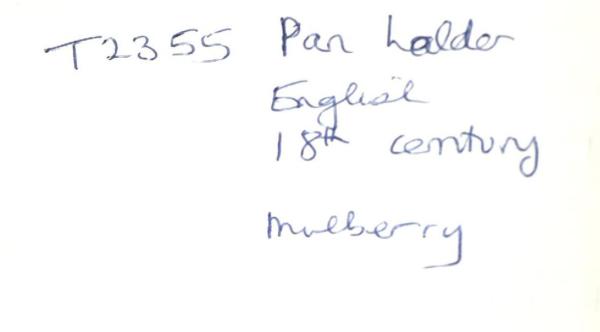 T2355 Pan holder
English
18th century
mulberry